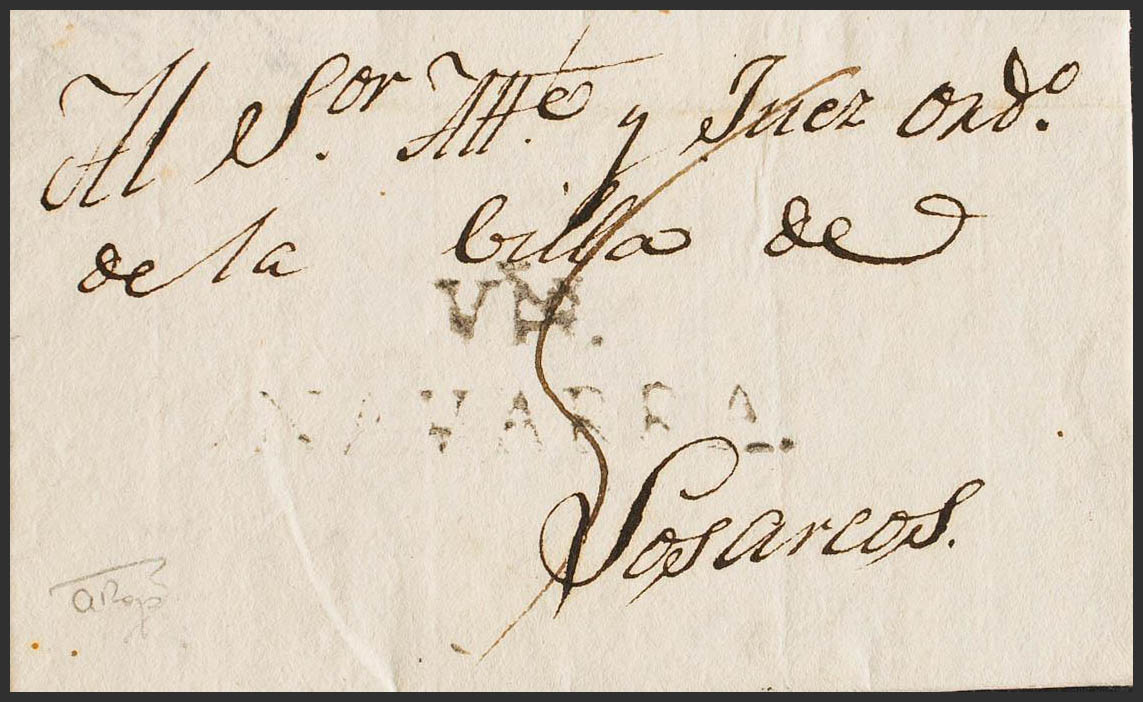 Al S.or Alt.e y Juez Ord.o
de la billa de
VN.
NAVARRA.
Losarcos.